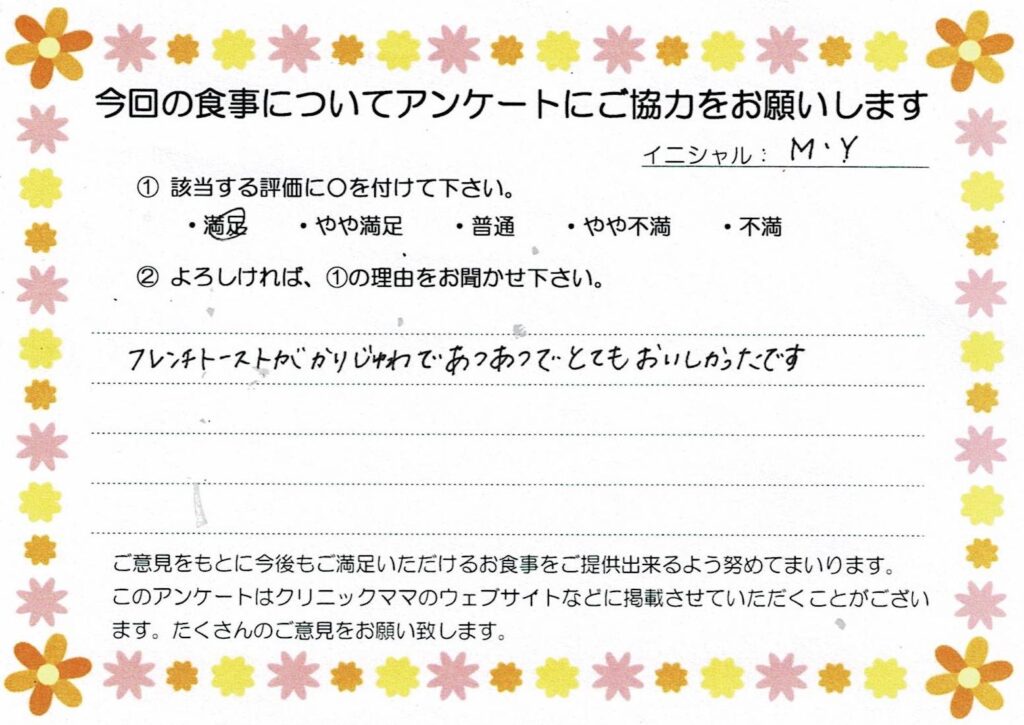 今回の食事についてアンケートにご協力をお願いします
イニシャル： M・Y
① 該当する評価に○を付けて下さい。
・満足 ・やや満足 ・普通 ・やや不満 ・不満
② よろしければ、①の理由をお聞かせ下さい。
フレンチトーストがかりじゅわであつあつでとてもおいしかったです
ご意見をもとに今後もご満足いただけるお食事をご提供出来るよう努めてまいります。
このアンケートはクリニックママのウェブサイトなどに掲載させていただくことがござい
ます。たくさんのご意見をお願い致します。